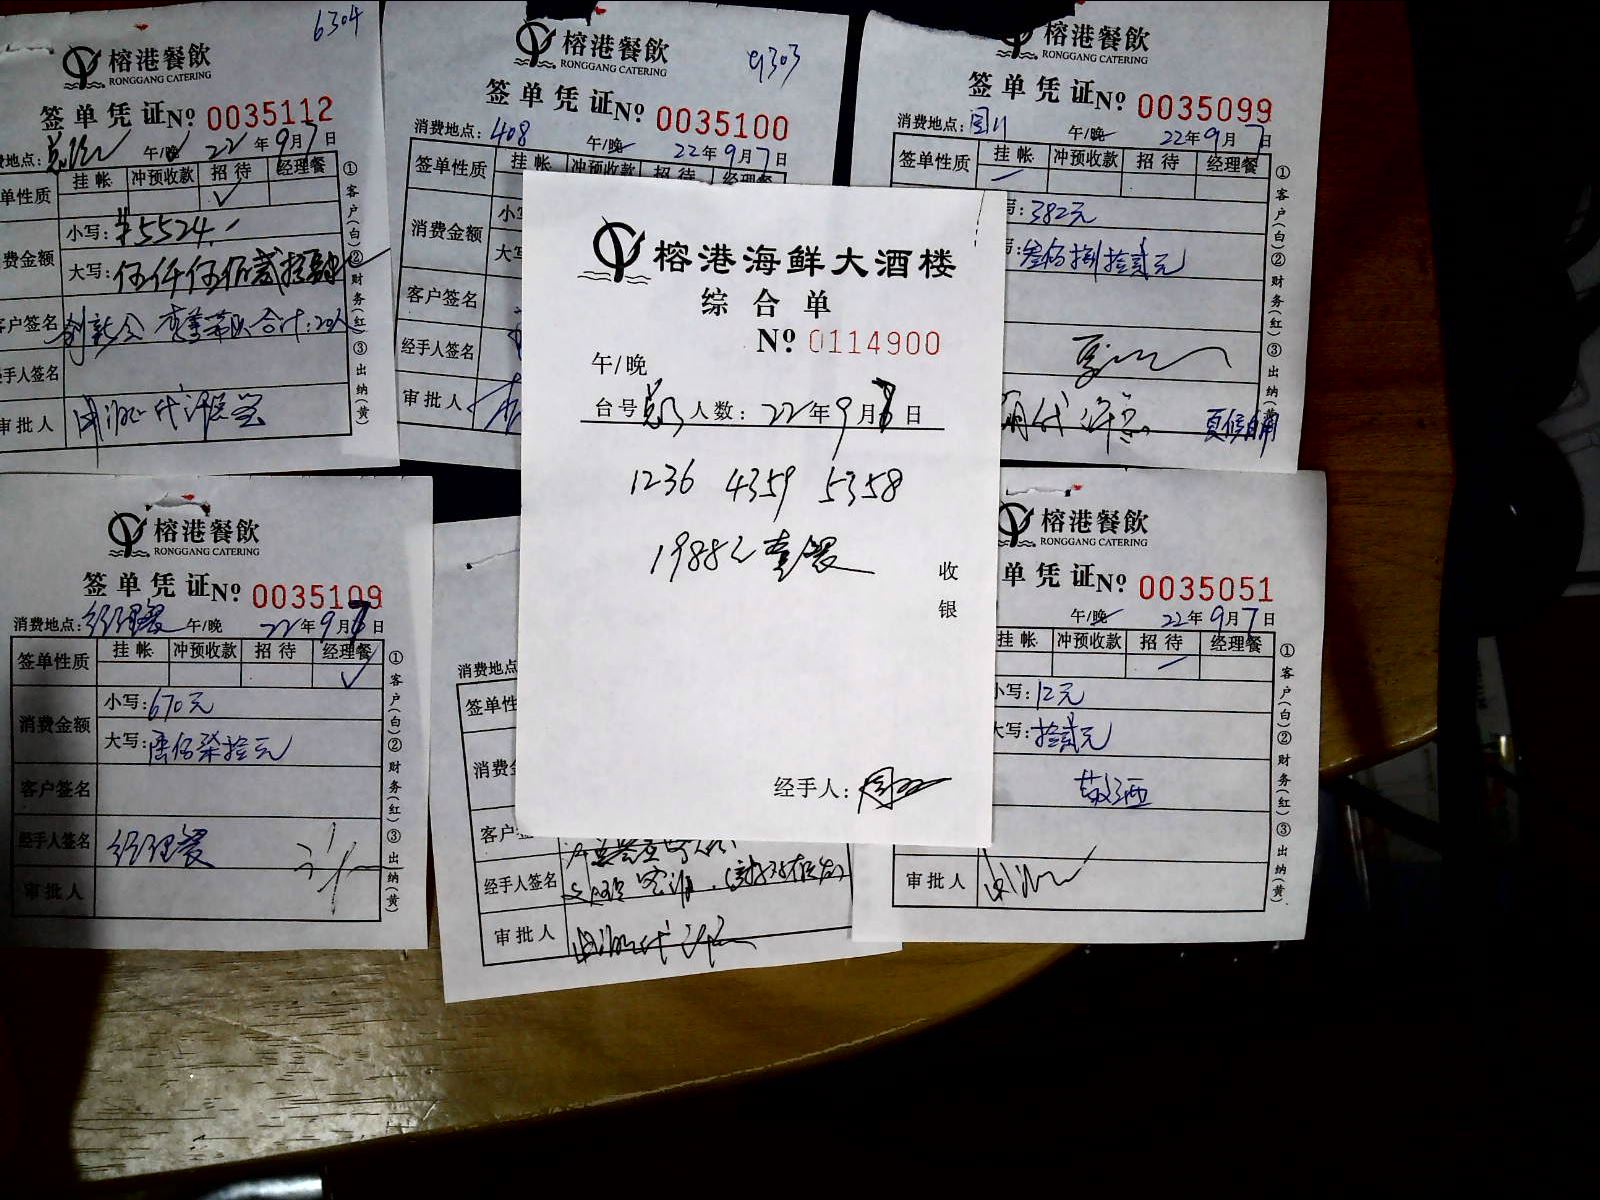 6304
榕港餐飲
RONGGANG CATERING
签单凭证 No 0035112
地点: 午/晚 22年9月7日
单性质 挂帐 冲预收款 招待 经理餐
费金额 小写: ¥5524.-
大写: 伍仟伍佰贰拾肆
客户签名 合计:20人
手人签名
审批人
①客户(白)②财务(红)③出纳(黄)
9303
榕港餐飲
RONGGANG CATERING
签单凭证 No 0035100
消费地点: 408 午/晚 22年9月7日
签单性质 挂帐 冲预收款 招待 经理餐
消费金额 小写
大写
客户签名
经手人签名
审批人
榕港餐飲
RONGGANG CATERING
签单凭证 No 0035099
消费地点: 午/晚 22年9月7日
签单性质 挂帐 冲预收款 招待 经理餐
写: 382元
写: 叁佰捌拾贰元
①客户(白)②财务(红)③出纳(黄)
榕港海鲜大酒楼
综合单
No 0114900
午/晚
台号 人数: 22年9月7日
1236 4359 5358
1988元套餐
收
银
经手人:
榕港餐飲
RONGGANG CATERING
签单凭证 No 0035109
消费地点: 经理餐 午/晚 22年9月7日
签单性质 挂帐 冲预收款 招待 经理餐
消费金额 小写: 670元
大写: 陆佰柒拾元
客户签名
经手人签名 经理餐
审批人
①客户(白)②财务(红)③出纳(黄)
消费地点
签单性
消费金
客户签
经手人签名
审批人
榕港餐飲
RONGGANG CATERING
单凭证 No 0035051
午/晚 22年9月7日
挂帐 冲预收款 招待 经理餐
小写: 12元
大写: 拾贰元
敬酒
审批人
①客户(白)②财务(红)③出纳(黄)